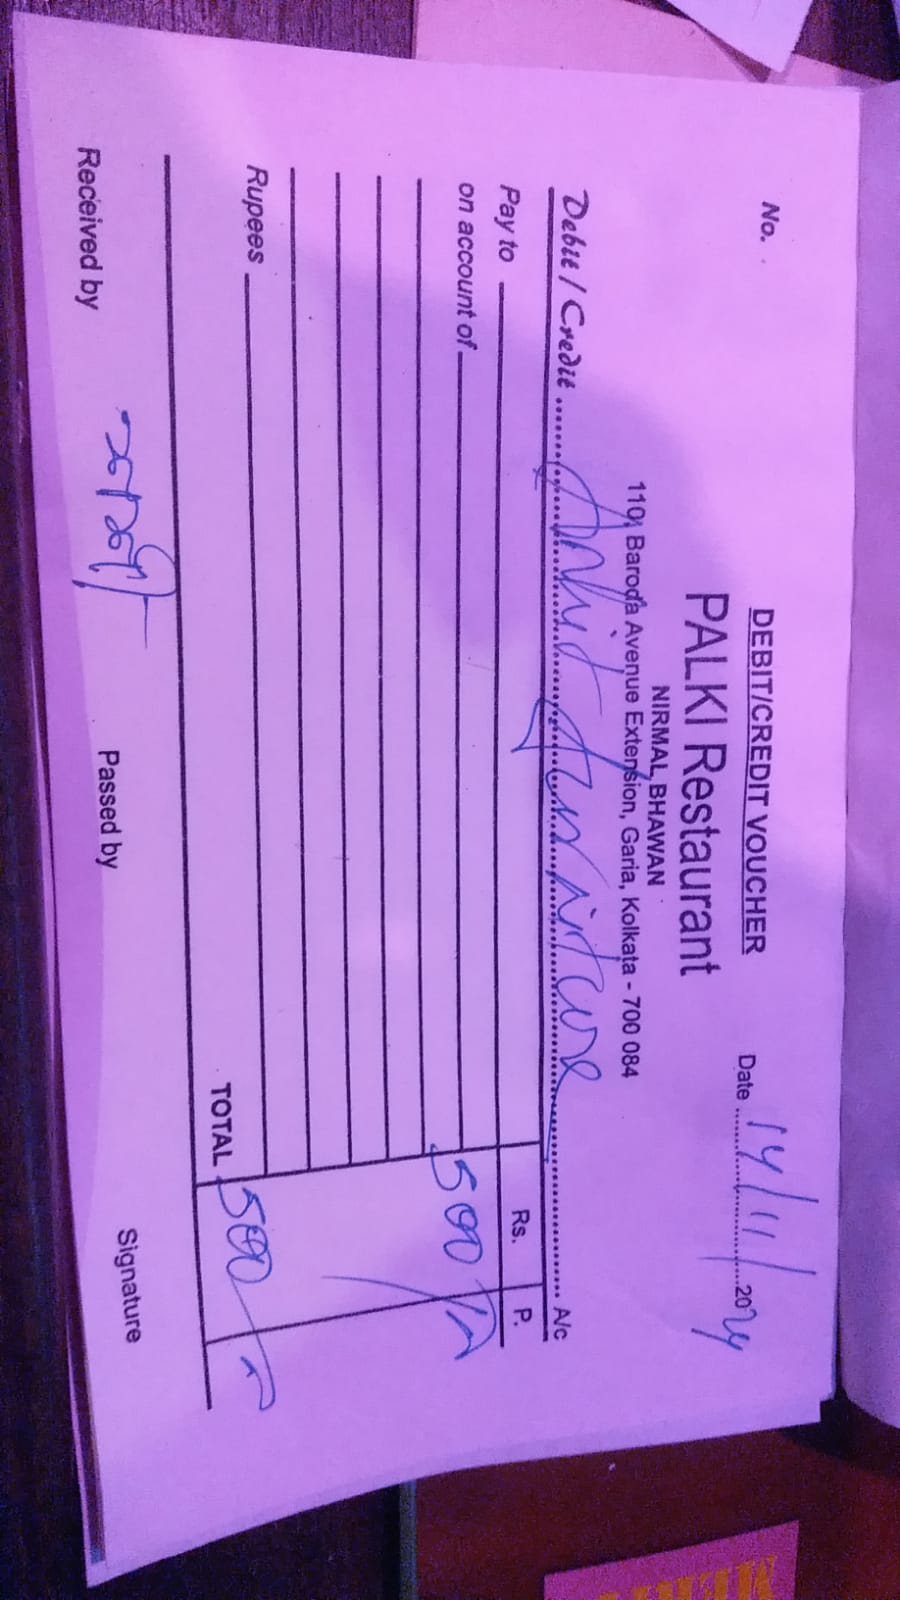 No.
DEBIT/CREDIT VOUCHER
Date 14/11/2024
PALKI Restaurant
NIRMAL BHAWAN
110, Baroda Avenue Extension, Garia, Kolkata - 700 084
Debit / Credit Furniture A/c
Rs. P.
Pay to
on account of 500/-
Rupees
TOTAL 500/-
Received by Passed by Signature